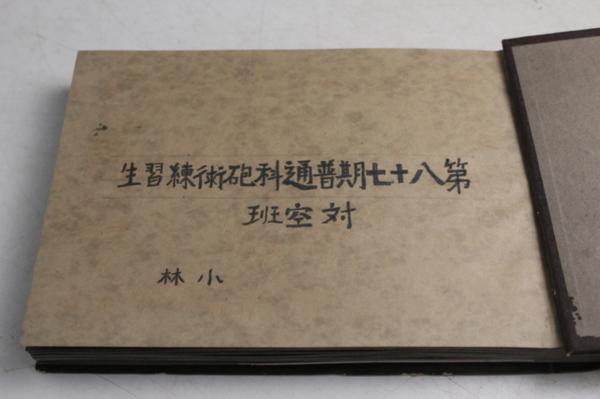 第八十七期普通科砲術練習生
対空班
小林